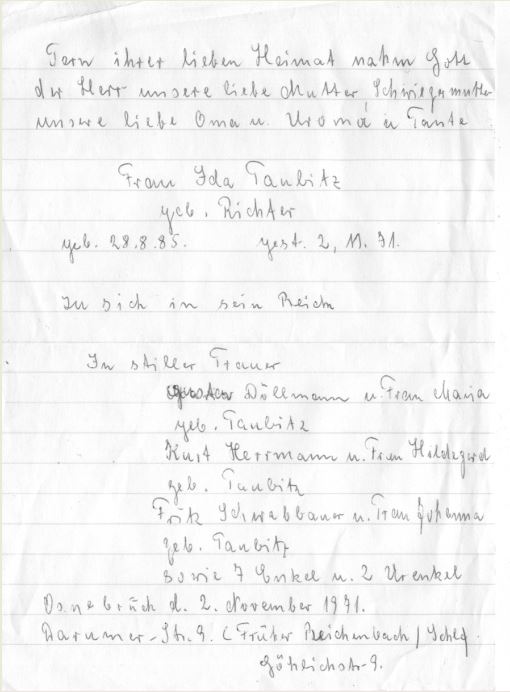 Fern ihrer lieben Heimat nahm Gott
der Herr unsere liebe Mutter, Schwiegermutter
unsere liebe Oma u. Uroma u Tante
Frau Ida Taubitz
geb. Richter
geb. 28.8.85. gest. 2, 11. 71.
Zu sich in sein Reich
In stiller Trauer
Döllmann u. Frau Maria
geb. Taubitz
Kurt Herrmann u. Frau Hildegard
geb. Taubitz
Fritz Schwabbauer u. Frau Johanna
geb. Taubitz
sowie 7 Enkel u. 2 Urenkel
Osnabrück d. 2. November 1971.
Darumer-Str. 9. (Früher Reichenbach / Schles.